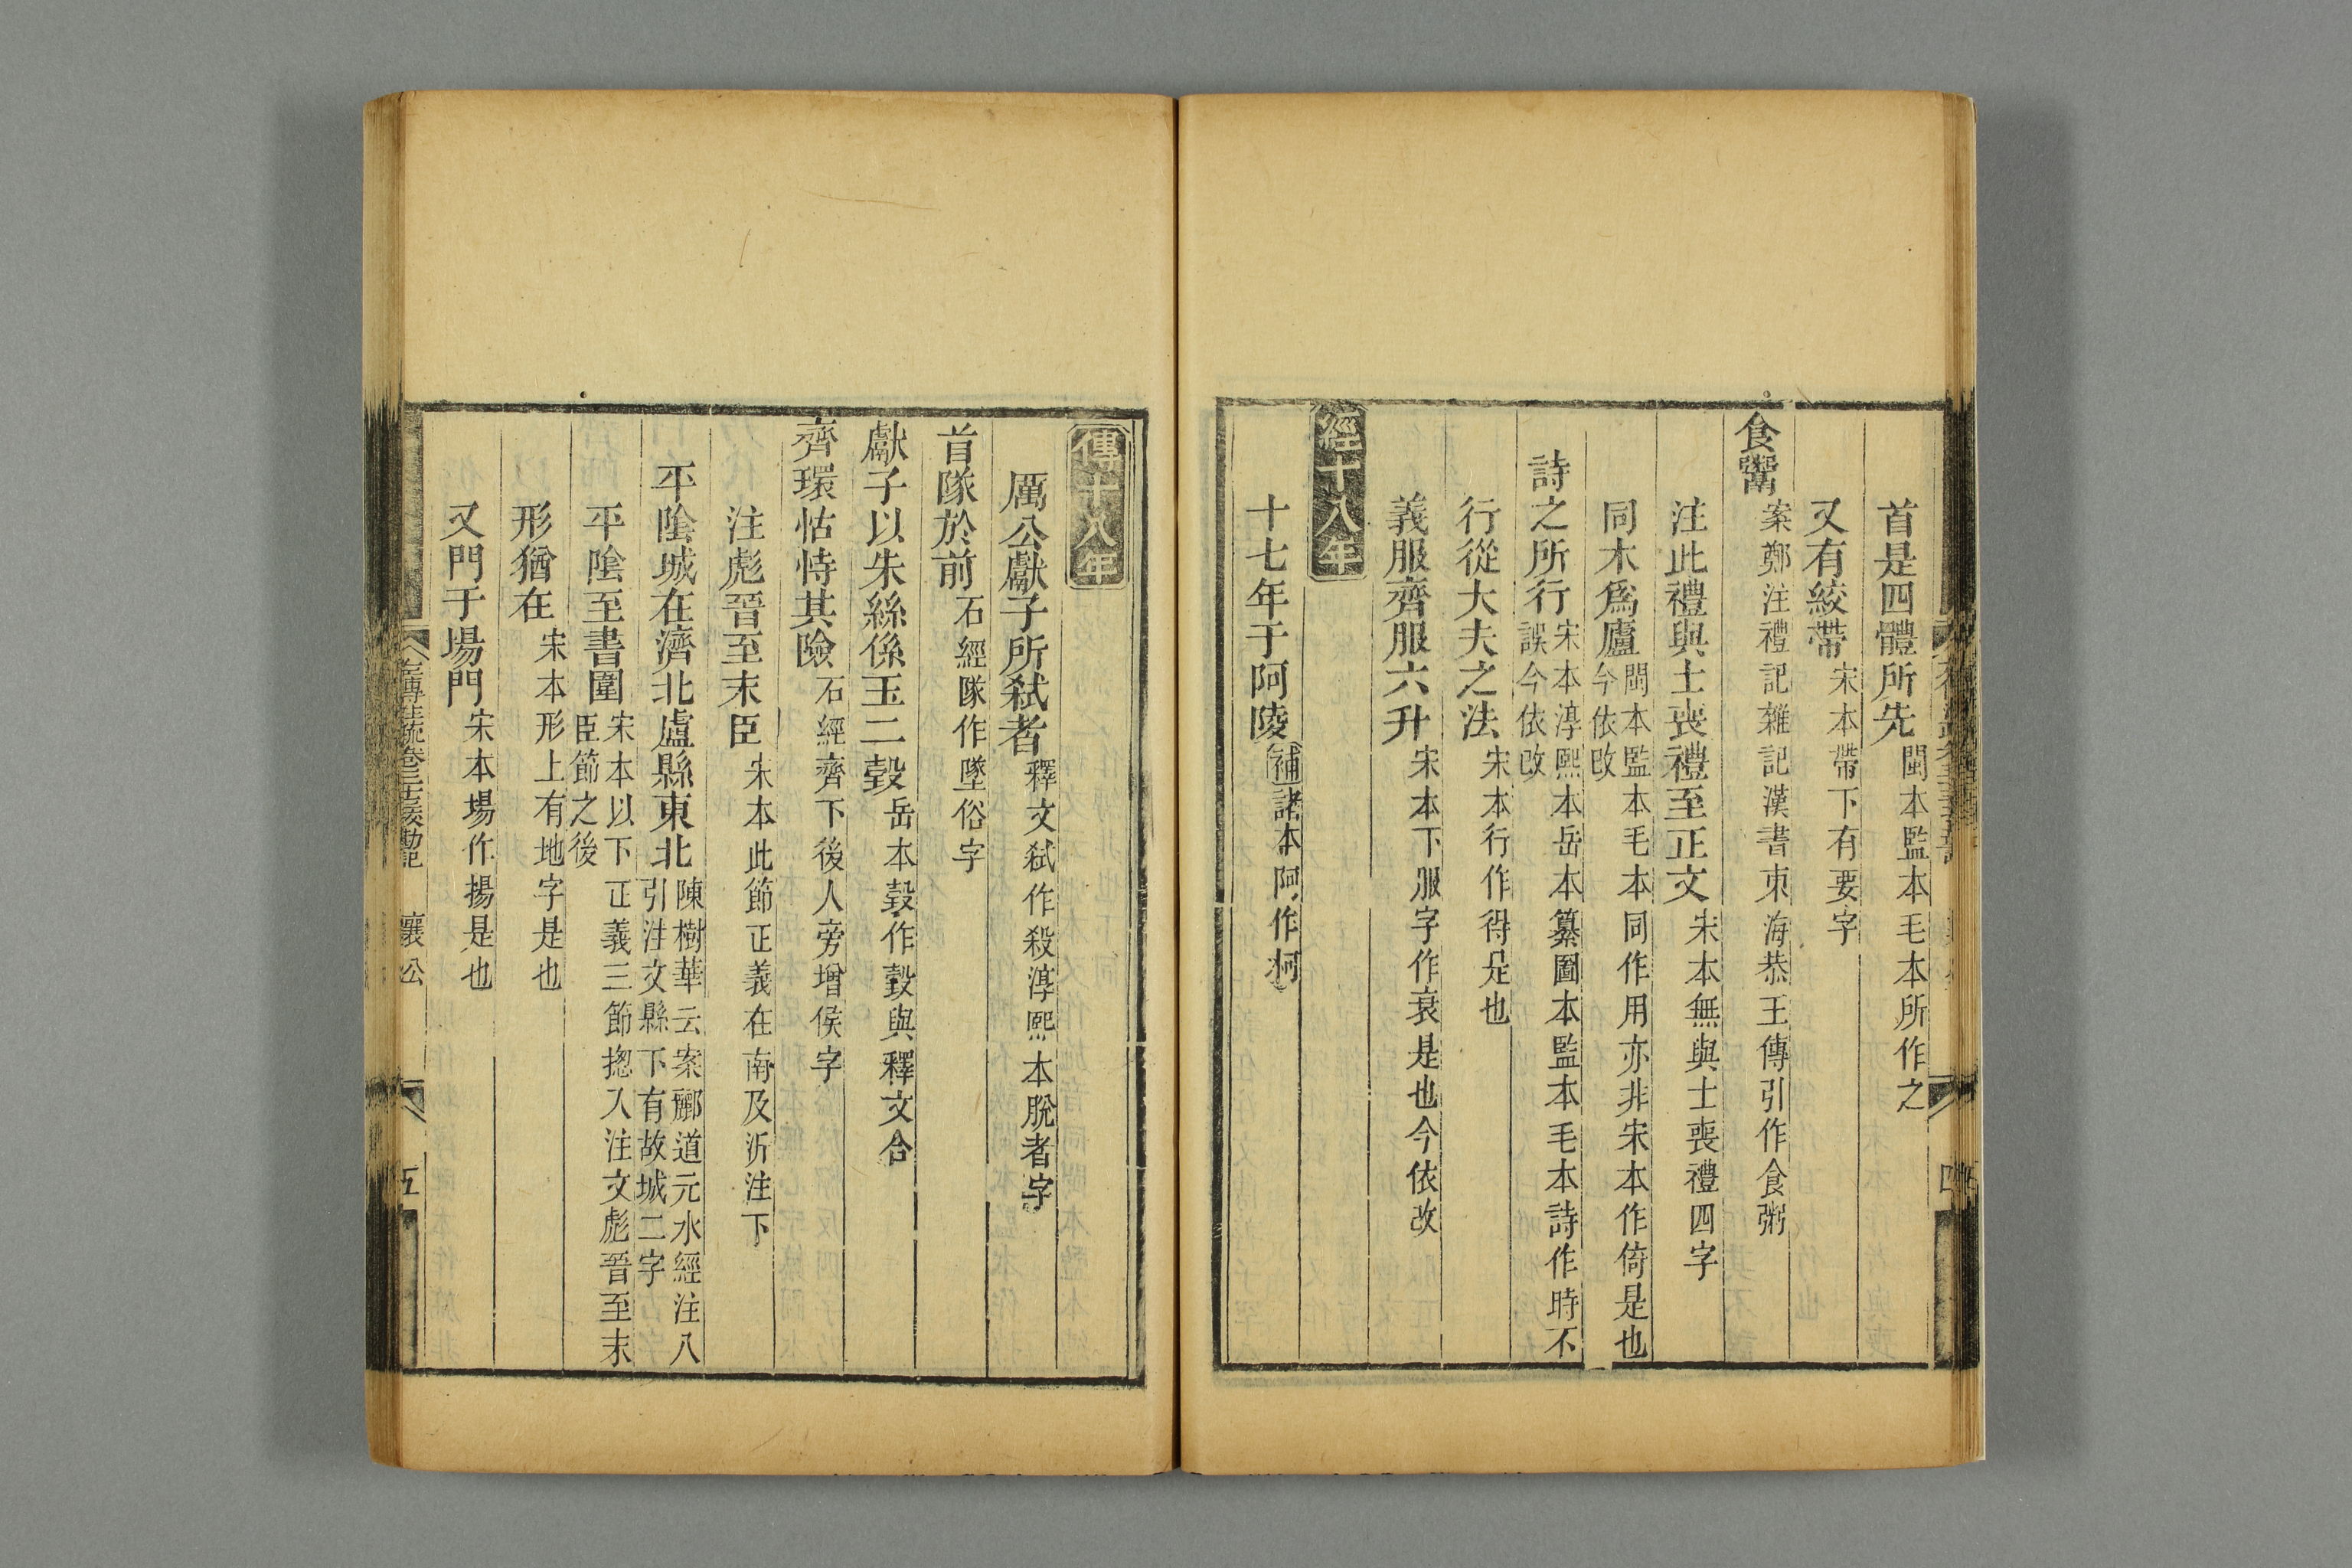 首是四體所先閩本監本毛本所作之
又有絞帶宋本帶下有要字
食鬻案鄭注禮記雜記漢書東海恭王傳引作食粥
注此禮與士喪禮至正文宋本無與士喪禮四字
同木爲廬閩本監本毛本同作用亦非宋本作倚是也
今依改
詩之所行宋本淳熙本岳本纂圖本監本毛本詩作時不
誤今依改
行從大夫之法宋本行作得是也
義服齊服六升宋本下服字作衰是也今依改
經十八年
十七年于阿陵補諸本阿作柯
傳十八年
厲公獻子所弑者釋文弑作殺淳熙本脫者字
首隊於前石經隊作墜俗字
獻子以朱絲係玉二瑴岳本瑴作瑴與釋文合
齊環怙恃其險石經齊下後人旁增侯字
注彪晉至末臣宋本此節正義在南及沂注下
平陰城在濟北盧縣東北陳樹華云案酈道元水經注八
引注文縣下有故城二字
平陰至書圍宋本以下正義三節揔入注文彪晉至末
臣節之後
形猶在宋本形上有地字是也
又門于場門宋本場作揚是也
襄公
五